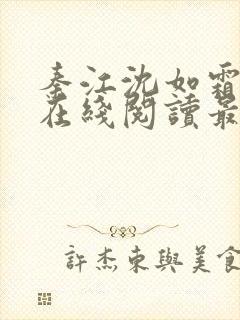 秦江沈如霜
在綫閱讀最
許杰東與美食